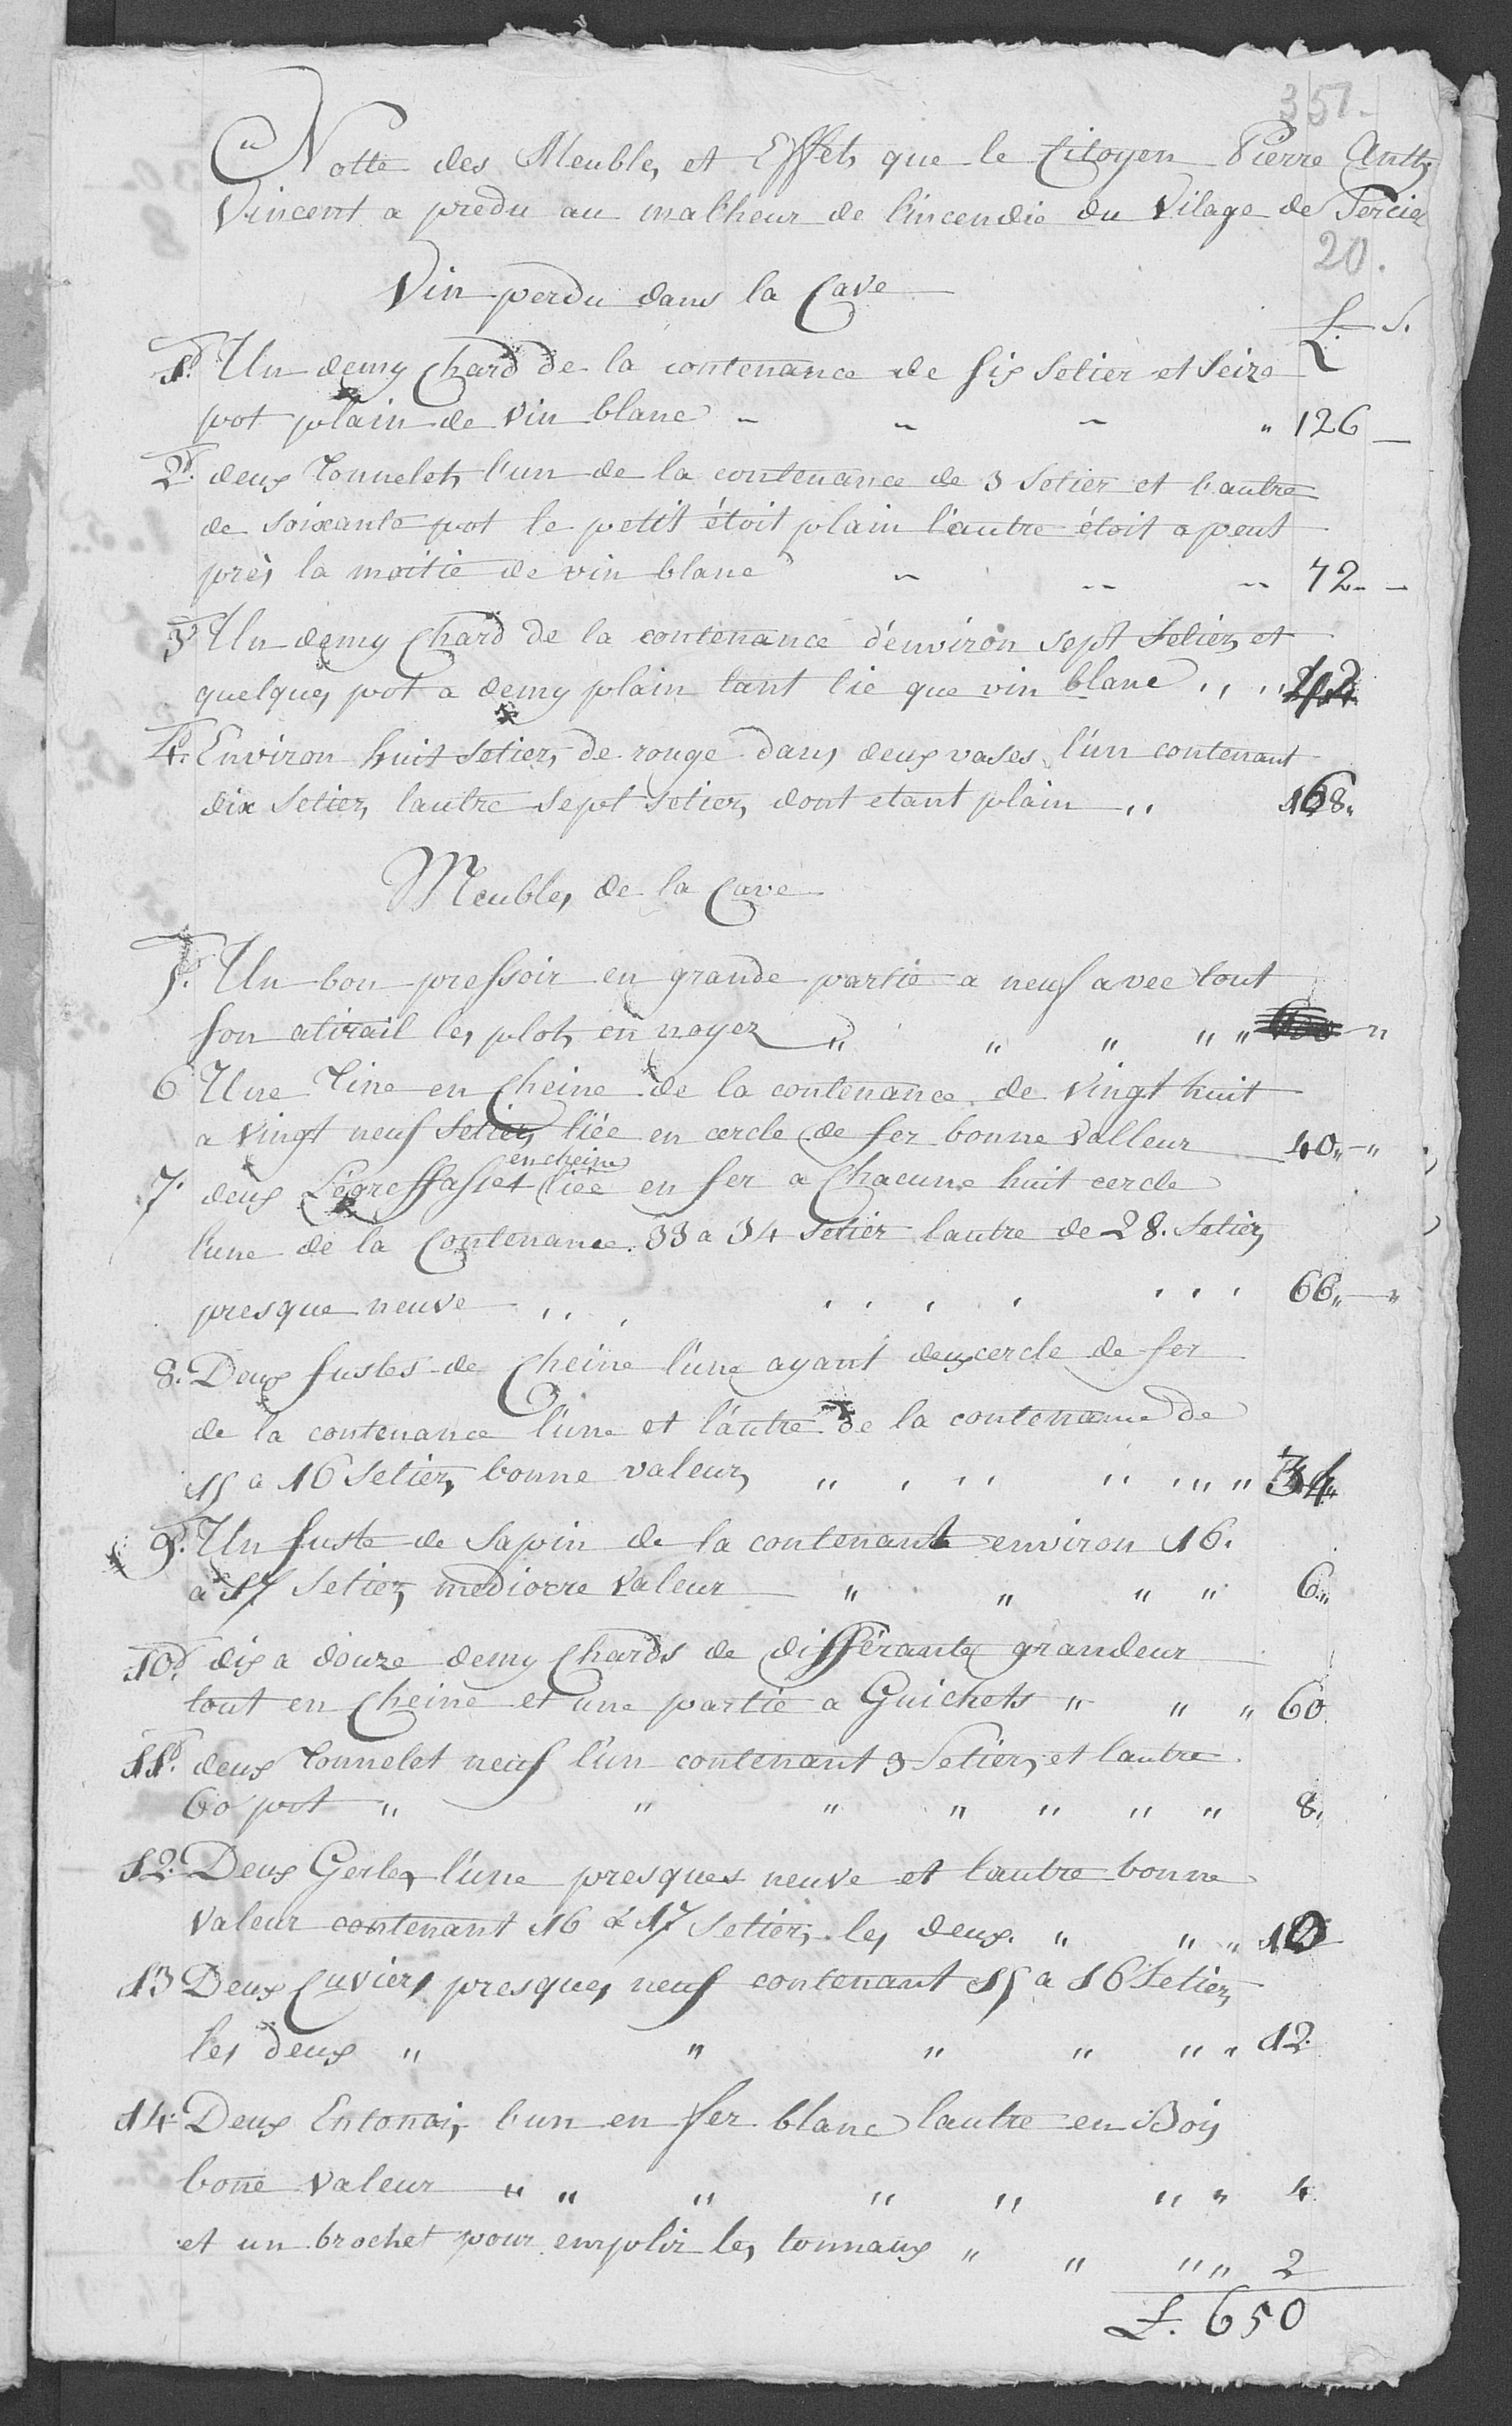 351.
Notte des Meubles et Effets que le Citoyen Pierre Antt
Vincent a predu au malheur de l'incendie du Vilage de Percier
20.
Vin perdu dans la Cave
L. S.
1º. Un demy Chard de la contenance de six Setier et Seize
pot plain de vin blanc " 126 —
2º. deux Tonnelets l'un de la contenance de 3 Setier et l'autre
de Soixante pot le petit étoit plain l'autre étoit a peut
près la moitié de vin blanc 72 - -
3º Un demy Chard de la contenance d'environ sept Setiers et
quelques pot a demy plain tant lie que vin blanc
4º. Environ huit Setiers de rouge dans deux vases l'un contenant
dix Setiers lautre Sept Setiers dont etant plain 168"
Meubles de la Cave
5º. Un bon pressoir en grande partie a neuf avec tout
son atirail les plots en noyer " " " " "
6 Une Tine en Cheine de la contenance de Vingt huit
a Vingt neuf Setiers liée en cercle de fer bonne Valleur 40"-"
en cheine
7. deux Legreffasset liée en fer a Chacune huit cercle
l'une de la Contenance 33 a 34 Setier lautre de 28. Setiers
presque neuve 66"-"
8. Deux fustes de Cheine l'une ayant deux cercle de fer
de la contenance l'une et l'autre de la contenance de
15 a 16 Setiers bonne valeurs 34
9º. Un fuste de Sapin de la contenante environ 16.
a 17 Setiers mediocre Valeur " " " " 6"
10º. dix a douze demy Chards de différantes grandeur
tout en Cheine et une partie a Guichets " " " 60
11º. deux Tonnelet neuf l'un contenant 3 Setiers et lautre
60 pot " " " " " " " 8"
12. Deux Gerles l'une presques neuve et lautre bonne
Valeur contenant 16 à 17 Setiers les deux. " " "
13 Deux Cuviers presques neuf contenant 15 a 16 Setiers
les deux " " " " " " 12
14. Deux Entonois l'un en fer blanc lautre en Bois
bone Valeur " " " " " " " 4
et un brochet pour emplir les tonnaux " " " " 2
L. 650